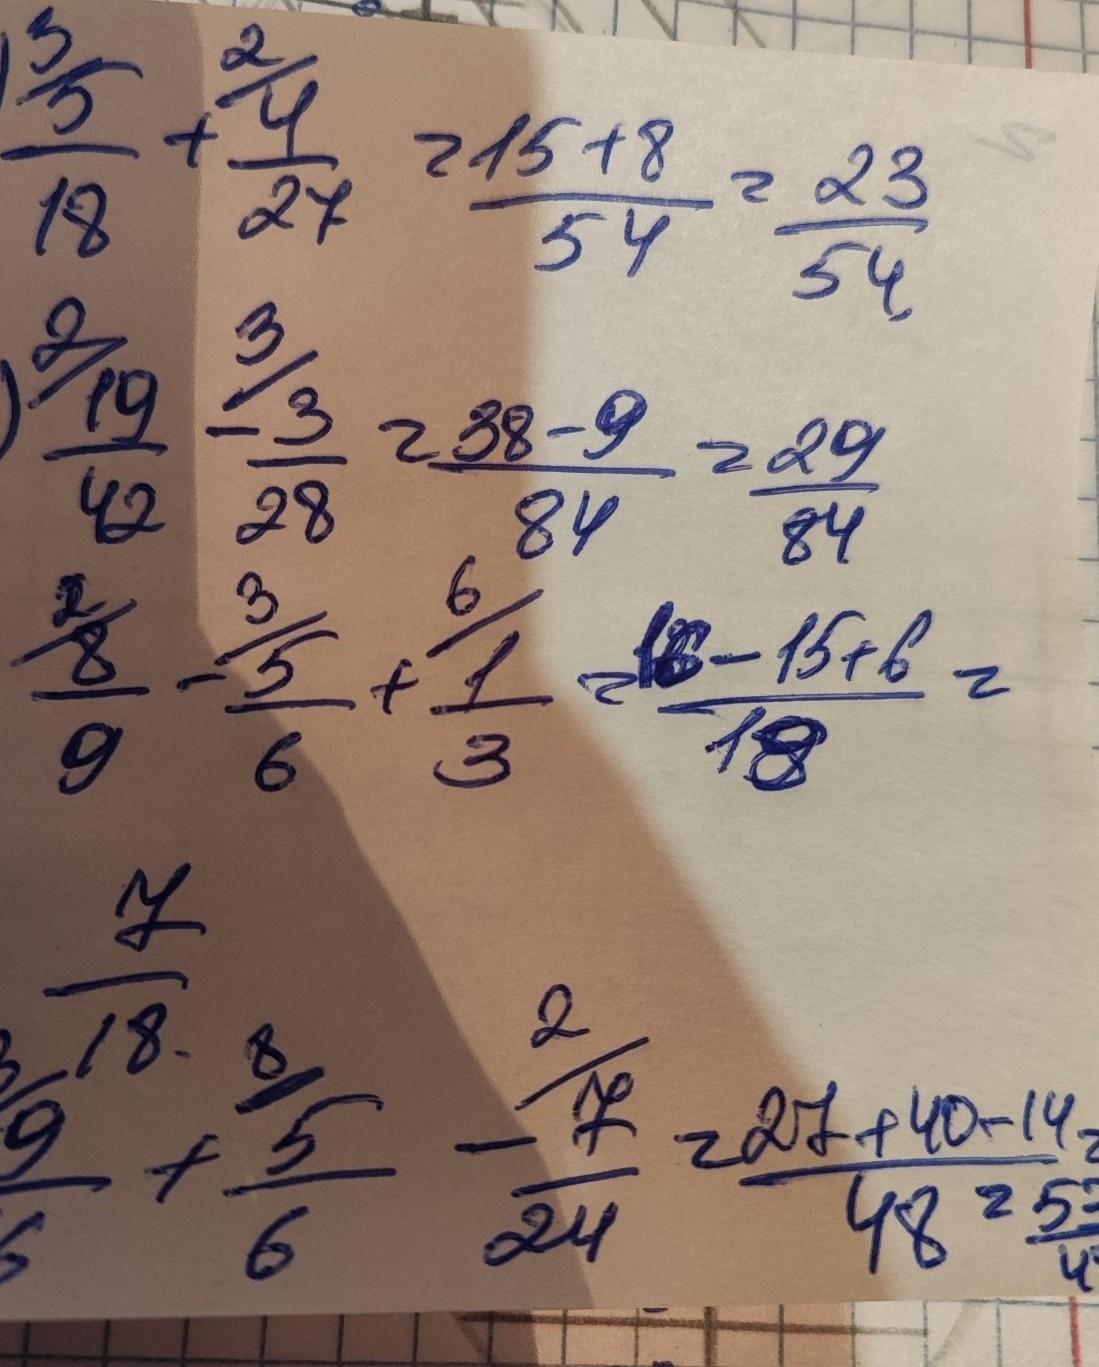 ) 3/ 2/
5/18 + 4/27 = 15+8/54 = 23/54
) 2/ 3/
19/42 - 3/28 = 38-9/84 = 29/84
2/ 3/ 6/
8/9 - 5/6 + 1/3 = 16-15+6/18 =
7/18.
3/ 8/ 2/
9/6 + 5/6 - 7/24 = 27+40-14/48 = = 53/4